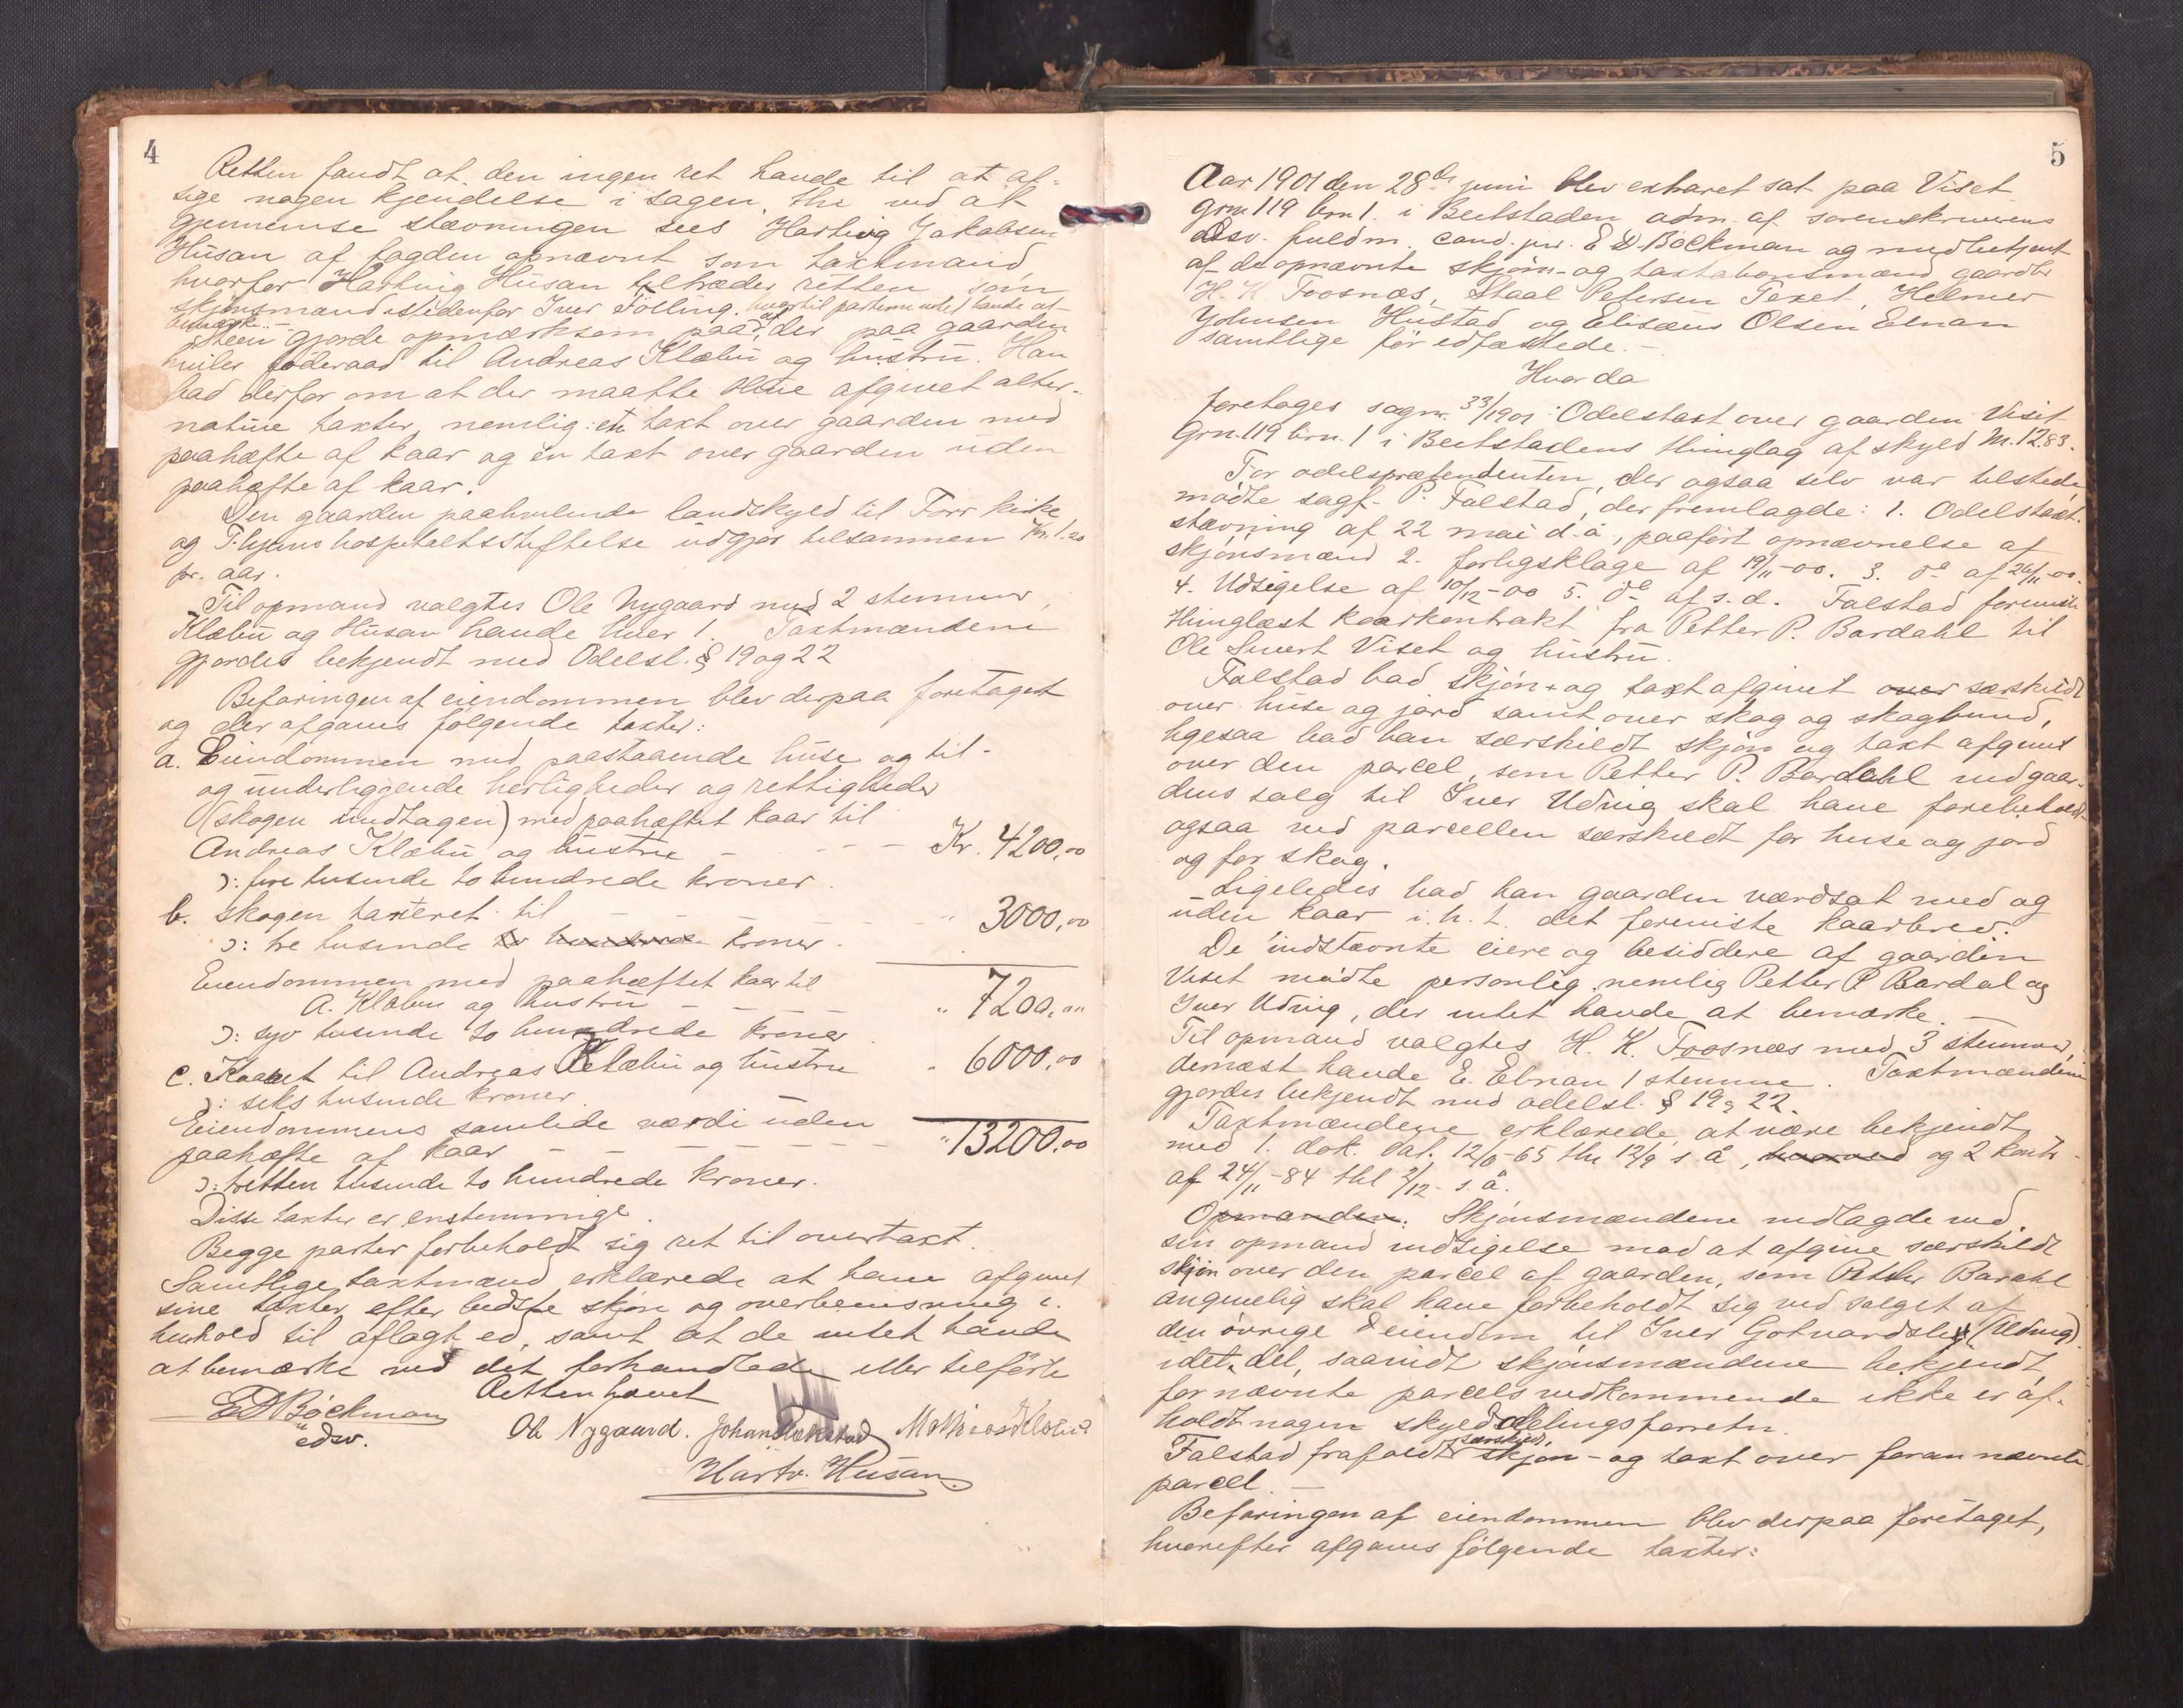 4
Retten fandt at den ingen ret havde til at af-
sige nogen kjendelse i sagen, thi ved at
gjennemse stævningen sees Hartvig Jakobsen
Husan af fogden opnævnt som taxtmand,
hvorfor Hartvig Husan tiltræder retten som
skjønsmand istedenfor Iver Følling. hvortil parterne intet havde at
bemærke.-
Steen gjorde opmærksom paa, at der paa gaarden
hviler føderaad til Andreas Klæbu og hustru. Han
bad derfor om at der maatte blive afgivet alter-
native taxter, nemlig: en taxt over gaarden med
paahæfte af kaar og en taxt over gaarden uden
paahæfte af kaar.
Den gaarden paahvilende landskyld til Forr kirke
og T.hjems hospitalsstiftelse udgjør tilsammen Kr. 1.20
pr. aar.
Til opmand valgtes Ole Nygaard med 2 stemmer,
Klæbu og Husan havde hver 1. Taxtmændene
gjordes bekjendt med Odelsl. § 19 og 22
Befaringen af eiendommen blev derpaa foretaget
og der afgaves følgende taxter:
a. Eiendommen med paastaaende huse og til-
og underliggende herligheder og rettigheder
(skogen undtagen) med paahæftet kaar til
Andreas Klæbu og hustru - - - - Kr. 4200,00
ɔ: fire tusinde to hundrede kroner.
b. skogen taxteret til - - - - " 3000,00
ɔ: tre tusinde to hundrede kroner.
Eiendommen med paahæftet kaar til
A. Klæbu og hustru - - - - " 7200,00
ɔ: syv tusinde to hundrede kroner.
c. Kaaret til Andreas Klæbu og hustru " 6000,00
ɔ: seks tusinde kroner.
Eiendommens samlede værdi uden
paahæfte af kaar - - - - " 13200.00
ɔ: tretten tusinde to hundrede kroner.
Disse taxter er enstemmige.
Begge parter forbeholdt sig ret til overtaxt.
Samtlige taxtmænd erklærede at have afgivet
sine taxter efter bedste skjøn og overbevisning i
henhold til aflagt ed, samt at de intet havde
at bemærke ved det forhandlede eller tilførte
Retten hævet
ED Bøckman
edsv.
Ole Nygaard. Johan Mathias Klæbu
Hartv. Husan
5
Aar 1901 den 28de juni blev extraret sat paa Viset
grn 119 brn 1. i Beitstaden adm. af sorenskriverens
edsv. fuldm. cand. jur. E D Bøckman og medbetjent
af de opnævnte skjøns- og taxtationsmænd gaardbr.
H. K Foosnæs, Staal Petersen Texet, Helmer
Johnsen Hustad og Elisæus Olsen Elnan
samtlige før edfæstede.-
Hvor da
foretoges sagnr. 33/1901: Odelstaxt over gaarden Viset
Grn. 119 brn. 1 i Beitstadens thinglag af skyld M. 12.83.
For odelsprætendenten, der ogsaa selv var tilstede
mødte sagf. P. Falstad, der fremlagde: 1. Odelstaxt-
stævning af 22 mai d. å., paaført opnævnelse af
skjønsmænd 2. forligsklage af 19/11-00. 3. do af 26/11-00.
4. Udsigelse af 10/12-00 5. do af s. d. Falstad foreviste
thinglæst kaarkontrakt fra Petter P. Bardahl til
Ole Sivert Viset og hustru.
Falstad bad skjøn og taxt afgivet over særskildt
over huse og jord samt over skog og skogbund,
ligesaa bad han særskildt skjøn og taxt afgivet
over den parcel, som Petter P. Bardahl ved gaar-
dens salg til Iver Udvig skal have forebeholdt
ogsaa ved parcellen særskildt for huse og jord
og for skog.
Ligeledes bad han gaarden værdsat med og
uden kaar i. h. t. det foreviste kaarbrev.
De indstævnte eiere og besiddere af gaarden
Viset mødte personlig nemlig Petter P Bardal og
Iver Udvig, der intet havde at bemærke.-
Til opmand valgtes H. K. Foosnæs med 3 stemmer,
dernæst havde E. Elnan 1 stemme. Taxtmændene
gjordes bekjendt med odelsl. § 19 og 22.
Taxtmændene erklærede at være bekjendt
med 1. dok. dat. 12/6-65 thl 12/9 s. å, hvorved og 2 kontr-
af 24/11-84 thl 2/12- s. å.
Opmanden. Skjønsmændene nedlagde ved
sin opmand indsigelse mod at afgive særskildt
skjøn over den parcel af gaarden, som Petter Bardahl
angivelig skal have forbeholdt sig ved salget af
den øvrige eiendom til Iver Gotvardslie (Udvig)
idet del, saavidt skjønsmændene bekjendt,
for nævnte parcels vedkommende ikke er af-
holdt nogen skyldelingsforretn.
Falstad frafaldt særskildt skjøn- og taxt over foran nævnte
parcel.-
Befaringen af eiendommen blev derpaa foretaget,
hvorefter afgaves følgende taxter: